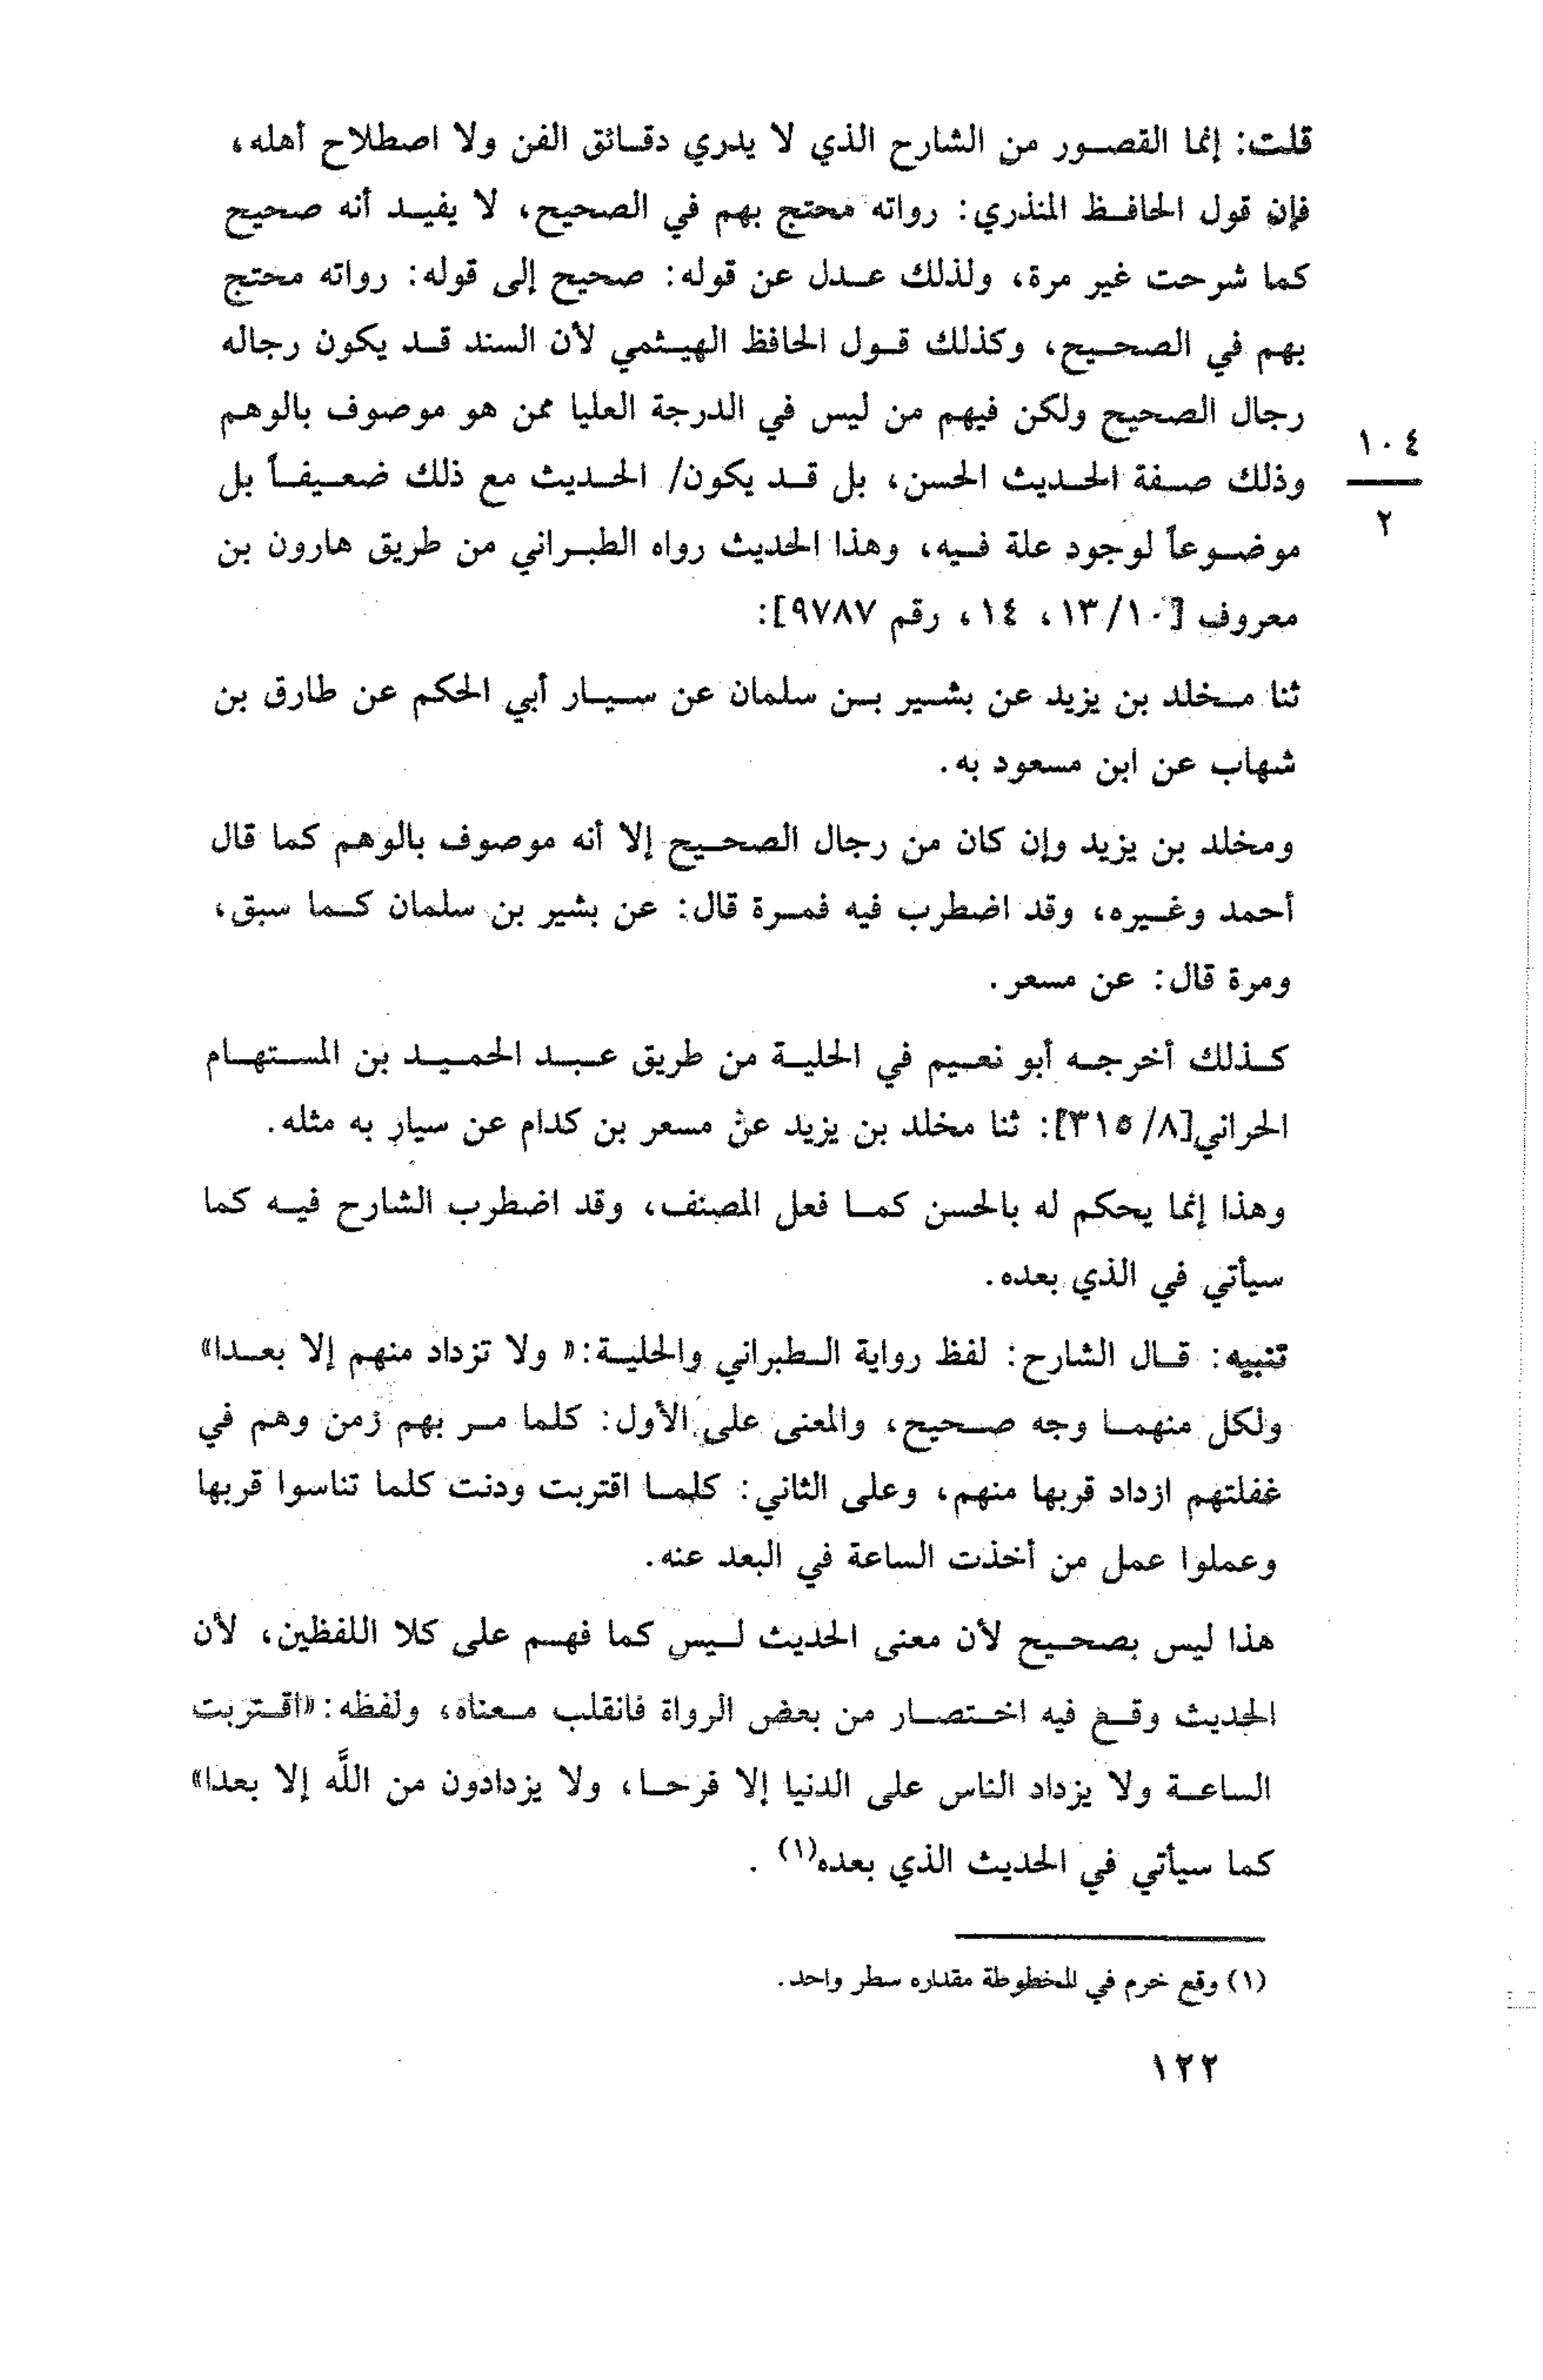 قلت: إنما القصور من الشارح الذي لا يدري دقائق الفن ولا اصطلاح أهله،
فإن قول الحافظ المنذري: رواته محتج بهم في الصحيح، لا يفيد أنه صحيح
كما شرحت غير مرة، ولذلك عدل عن قوله: صحيح إلى قوله: رواته محتج
بهم في الصحيح، وكذلك قول الحافظ الهيثمي لأن السند قد يكون رجاله
رجال الصحيح ولكن فيهم من ليس في الدرجة العليا ممن هو موصوف بالوهم
١٠٤
وذلك صفة الحديث الحسن، بل قد يكون/ الحديث مع ذلك ضعيفاً بل
٢
موضوعاً لوجود علة فيه، وهذا الحديث رواه الطبراني من طريق هارون بن
معروف [١٣/١٠، ١٤، رقم ٩٧٨٧]:
ثنا مخلد بن يزيد عن بشير بن سلمان عن سيار أبي الحكم عن طارق بن
شهاب عن ابن مسعود به.
ومخلد بن يزيد وإن كان من رجال الصحيح إلا أنه موصوف بالوهم كما قال
أحمد وغيره، وقد اضطرب فيه فمرة قال: عن بشير بن سلمان كما سبق،
ومرة قال: عن مسعر.
كذلك أخرجه أبو نعيم في الحلية من طريق عبد الحميد بن المستهام
الحراني[٨/ ٣١٥]: ثنا مخلد بن يزيد عن مسعر بن كدام عن سيار به مثله.
وهذا إنما يحكم له بالحسن كما فعل المصنف، وقد اضطرب الشارح فيه كما
سيأتي في الذي بعده.
تنبيه: قال الشارح: لفظ رواية الطبراني والحلية:« ولا تزداد منهم إلا بعدا»
ولكل منهما وجه صحيح، والمعنى على الأول: كلما مر بهم زمن وهم في
غفلتهم ازداد قربها منهم، وعلى الثاني: كلما اقتربت ودنت كلما تناسوا قربها
وعملوا عمل من أخذت الساعة في البعد عنه.
هذا ليس بصحيح لأن معنى الحديث ليس كما فهم على كلا اللفظين، لأن
الحديث وقع فيه اختصار من بعض الرواة فانقلب معناه، ولفظه:«اقتربت
الساعة ولا يزداد الناس على الدنيا إلا فرحا، ولا يزدادون من اللَّه إلا بعدا»
كما سيأتي في الحديث الذي بعده(١) .
(١) وقع خرم في المخطوطة مقداره سطر واحد.
١٢٢